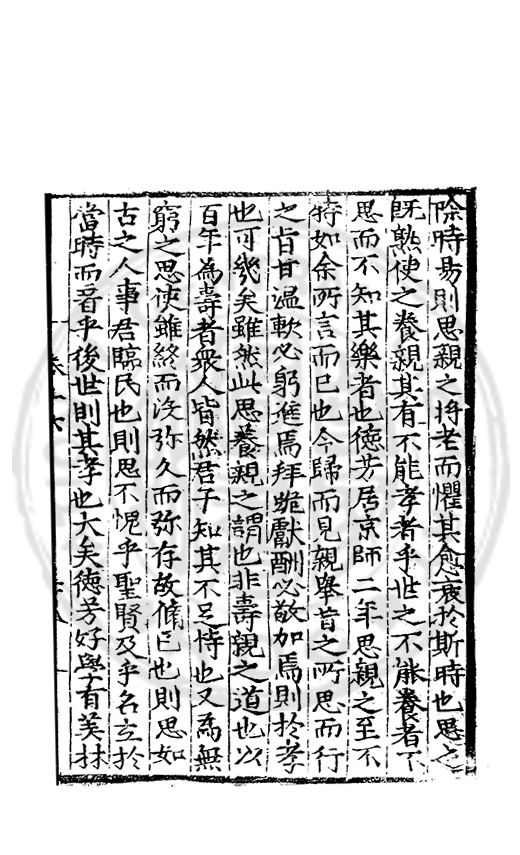 除時易則思親之將老而懼其愈疲於斯時也思之
既熟使之養親其有不能孝者乎世之不能養者不
思而不知其樂者也德芳居京師二年思親之至不
特如余所言而已也今歸而見親舉昔之所思而行
之旨甘溫軟必躬進焉拜跪獻酬必敬加焉則於孝
也可幾矣雖然此思養親之謂也非壽親之道也以
百年為壽者衆人皆然君子知其不足恃也又為無
窮之思使雖終而沒弥久而弥存故脩已也則思如
古之人事君臨民也則思不愧乎聖賢及乎名立於
當時而著乎後世則其孝也大矣德芳好學有美材